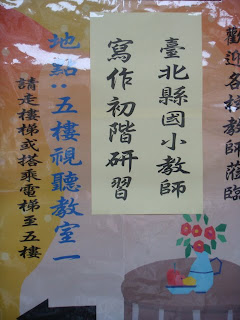 歡迎各校教師蒞臨
臺北縣國小教師
寫作初階研習
地點：五樓視聽教室一
請走樓梯或搭乘電梯至五樓